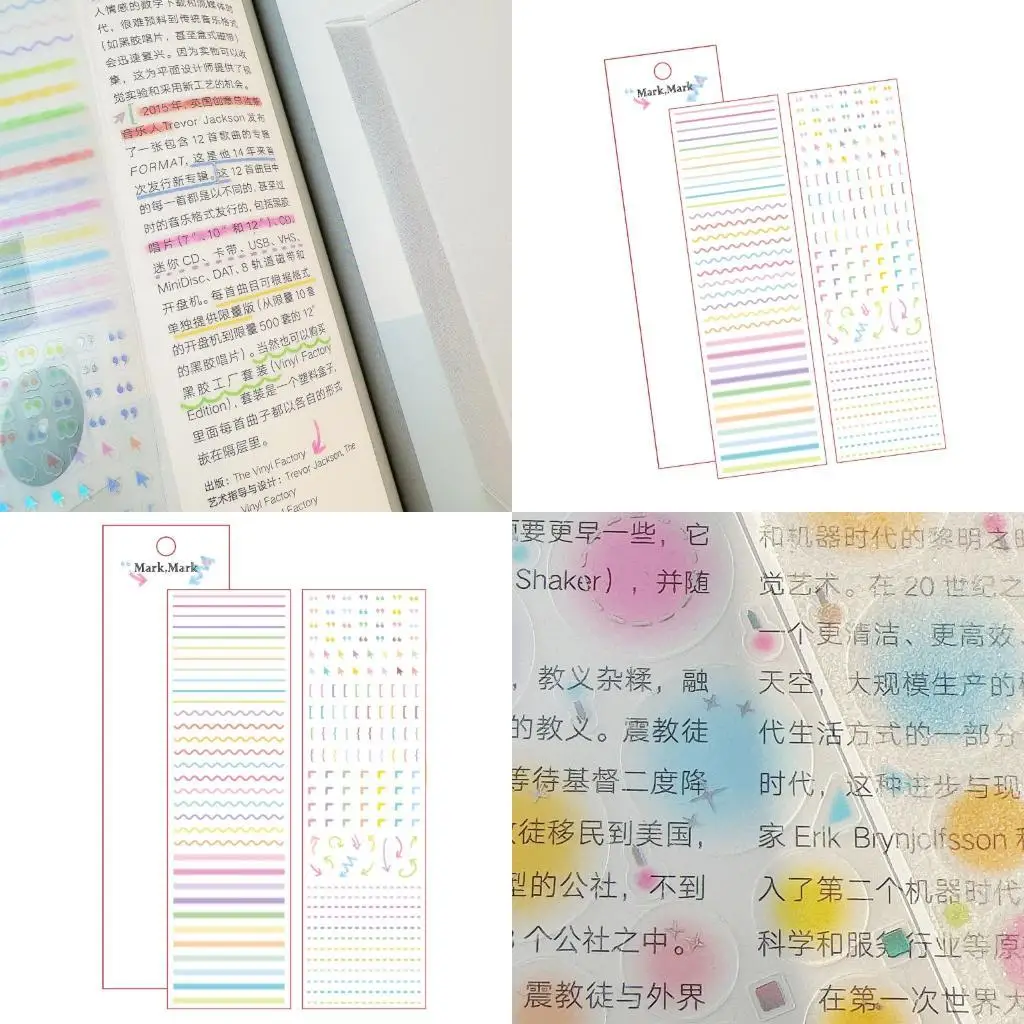 人情感的数字下载和流媒体时
代，很难预料到传统音乐格式
（如黑胶唱片，甚至盒式磁带）
会迅速复兴。因为实物可以收
集，这为平面设计师提供了视
觉实验和采用新工艺的机会。
2015年，英国创意总监兼
音乐人Trevor Jackson发布
了一张包含12首歌曲的专辑
FORMAT，这是他14年来首
次发行新专辑。这12首曲目中
的每一首都是以不同的，甚至过
时的音乐格式发行的，包括黑胶
唱片（7＂、10＂和12＂）、CD、
迷你CD、卡带、USB、VHS、
MiniDisc、DAT、8轨道磁带和
开盘机。每首曲目可根据格式
单独提供限量版（从限量10套
的开盘机到限量500套的12＂
的黑胶唱片）。当然也可以购买
黑胶工厂套装（Vinyl Factory
Edition），套装是一个塑料盒子，
里面每首曲子都以各自的形式
嵌在隔层里。
出版：The Vinyl Factory
艺术指导与设计：Trevor Jackson, The
Vinyl Factory
Factory
Mark,Mark
Mark,Mark
要更早一些，它
Shaker），并随
，教义杂糅，融
的教义。震教徒
等待基督二度降
徒移民到美国，
型的公社，不到
个公社之中。
震教徒与外界
和机器时代的黎明之
觉艺术。在20世纪之
一个更清洁、更高效
天空，大规模生产的
代生活方式的一部分
时代，这种进步与现
家Erik Brynjolfsson
入了第二个机器时代
科学和服务行业等原
在第一次世界大